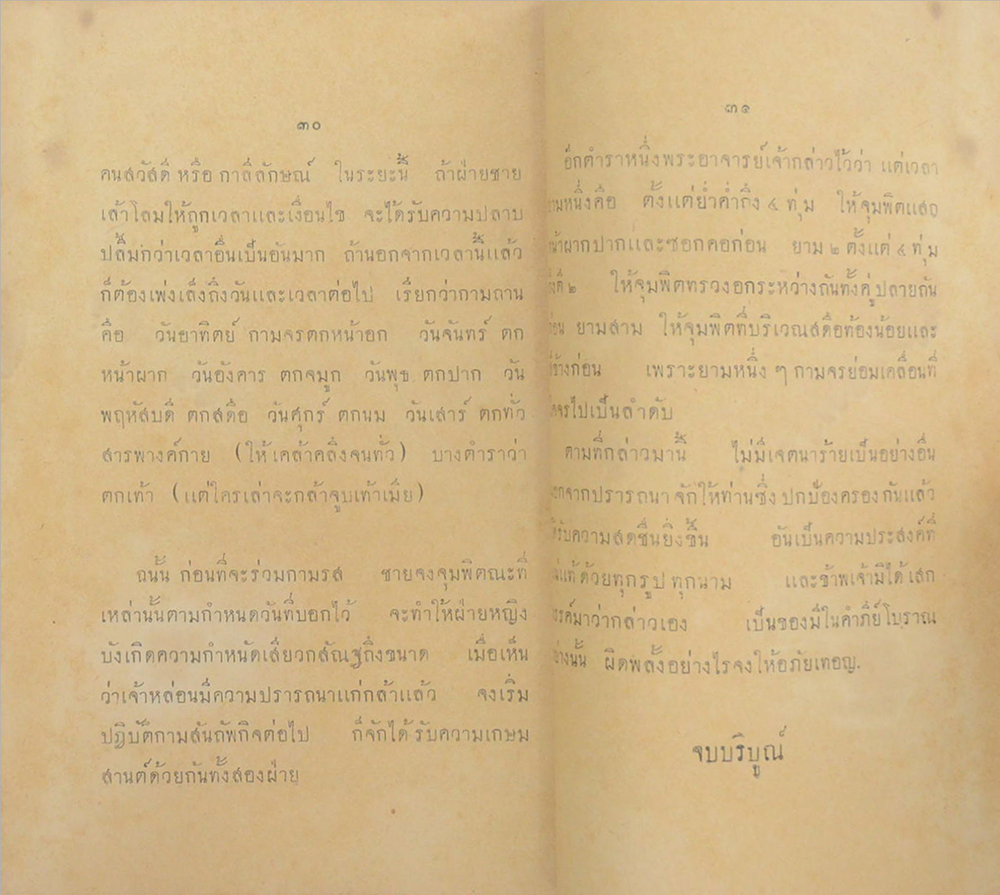 ๓๐
คนสวัสดี หรือ กาลีลักษณ์ ในระยะนี้ ถ้าฝ่ายชาย
เล้าโลมให้ถูกเวลาและเงื่อนไข จะได้รับความปลาบ
ปลื้มกว่าเวลาอื่นเป็นอันมาก ถ้านอกจากเวลานี้แล้ว
ก็ต้องเพ่งเล็งถึงวันและเวลาต่อไป เรียกว่ากามถาน
คือ วันอาทิตย์ กามจรตกหน้าอก วันจันทร์ ตก
หน้าผาก วันอังคาร ตกจมูก วันพุธ ตกปาก วัน
พฤหัสบดี ตกสดือ วันศุกร์ ตกนม วันเสาร์ ตกทั่ว
สารพางค์กาย (ให้เคล้าคลึงจนทั่ว) บางตำราว่า
ตกเท้า (แต่ใครเล่าจะกล้าจูบเท้าเมีย)
ฉนั้น ก่อนที่จะร่วมกามรส ชายจงจุมพิตณะที่
เหล่านั้นตามกำหนดวันที่บอกไว้ จะทำให้ฝ่ายหญิง
บังเกิดความกำหนัดเสียวกสัณฐถึงขนาด เมื่อเห็น
ว่าเจ้าหล่อนมีความปรารถนาแก่กล้าแล้ว จงเริ่ม
ปฏิบัติกามสันถัพกิจต่อไป ก็จักได้รับความเกษม
สานต์ด้วยกันทั้งสองฝ่าย
๓๑
อีกตำราหนึ่งพระอาจารย์เจ้ากล่าวไว้ว่า แต่เวลา
ยามหนึ่งคือ ตั้งแต่ย่ำค่ำถึง ๔ ทุ่ม ให้จุมพิตแสก
หน้าผากปากและซอกคอก่อน ยาม ๒ ตั้งแต่ ๔ ทุ่ม
ถึงตี ๒ ให้จุมพิตทรวงอกระหว่างถันทั้งคู่ ปลายถัน
ก่อน ยามสาม ให้จุมพิตที่บริเวณสดือท้องน้อยและ
ก่อน เพราะยามหนึ่ง ๆ กามจรย่อมเคลื่อนที่
จรไปเป็นลำดับ
ตามที่กล่าวมานี้ ไม่มีเจตนาร้ายเป็นอย่างอื่น
นอกจากปรารถนา จักให้ท่านซึ่ง ปกป้องครองกันแล้ว
ได้รับความสดชื่นยิ่งขึ้น อันเป็นความประสงค์ที่
แน่แท้ด้วยทุกรูป ทุกนาม และข้าพเจ้ามิได้เสก
สรรค์มาว่ากล่าวเอง เป็นของมีในคำภีย์โบราณ
อย่างนั้น ผิดพลั้งอย่างไรจงให้อภัยเทอญ.
จบบริบูณ์